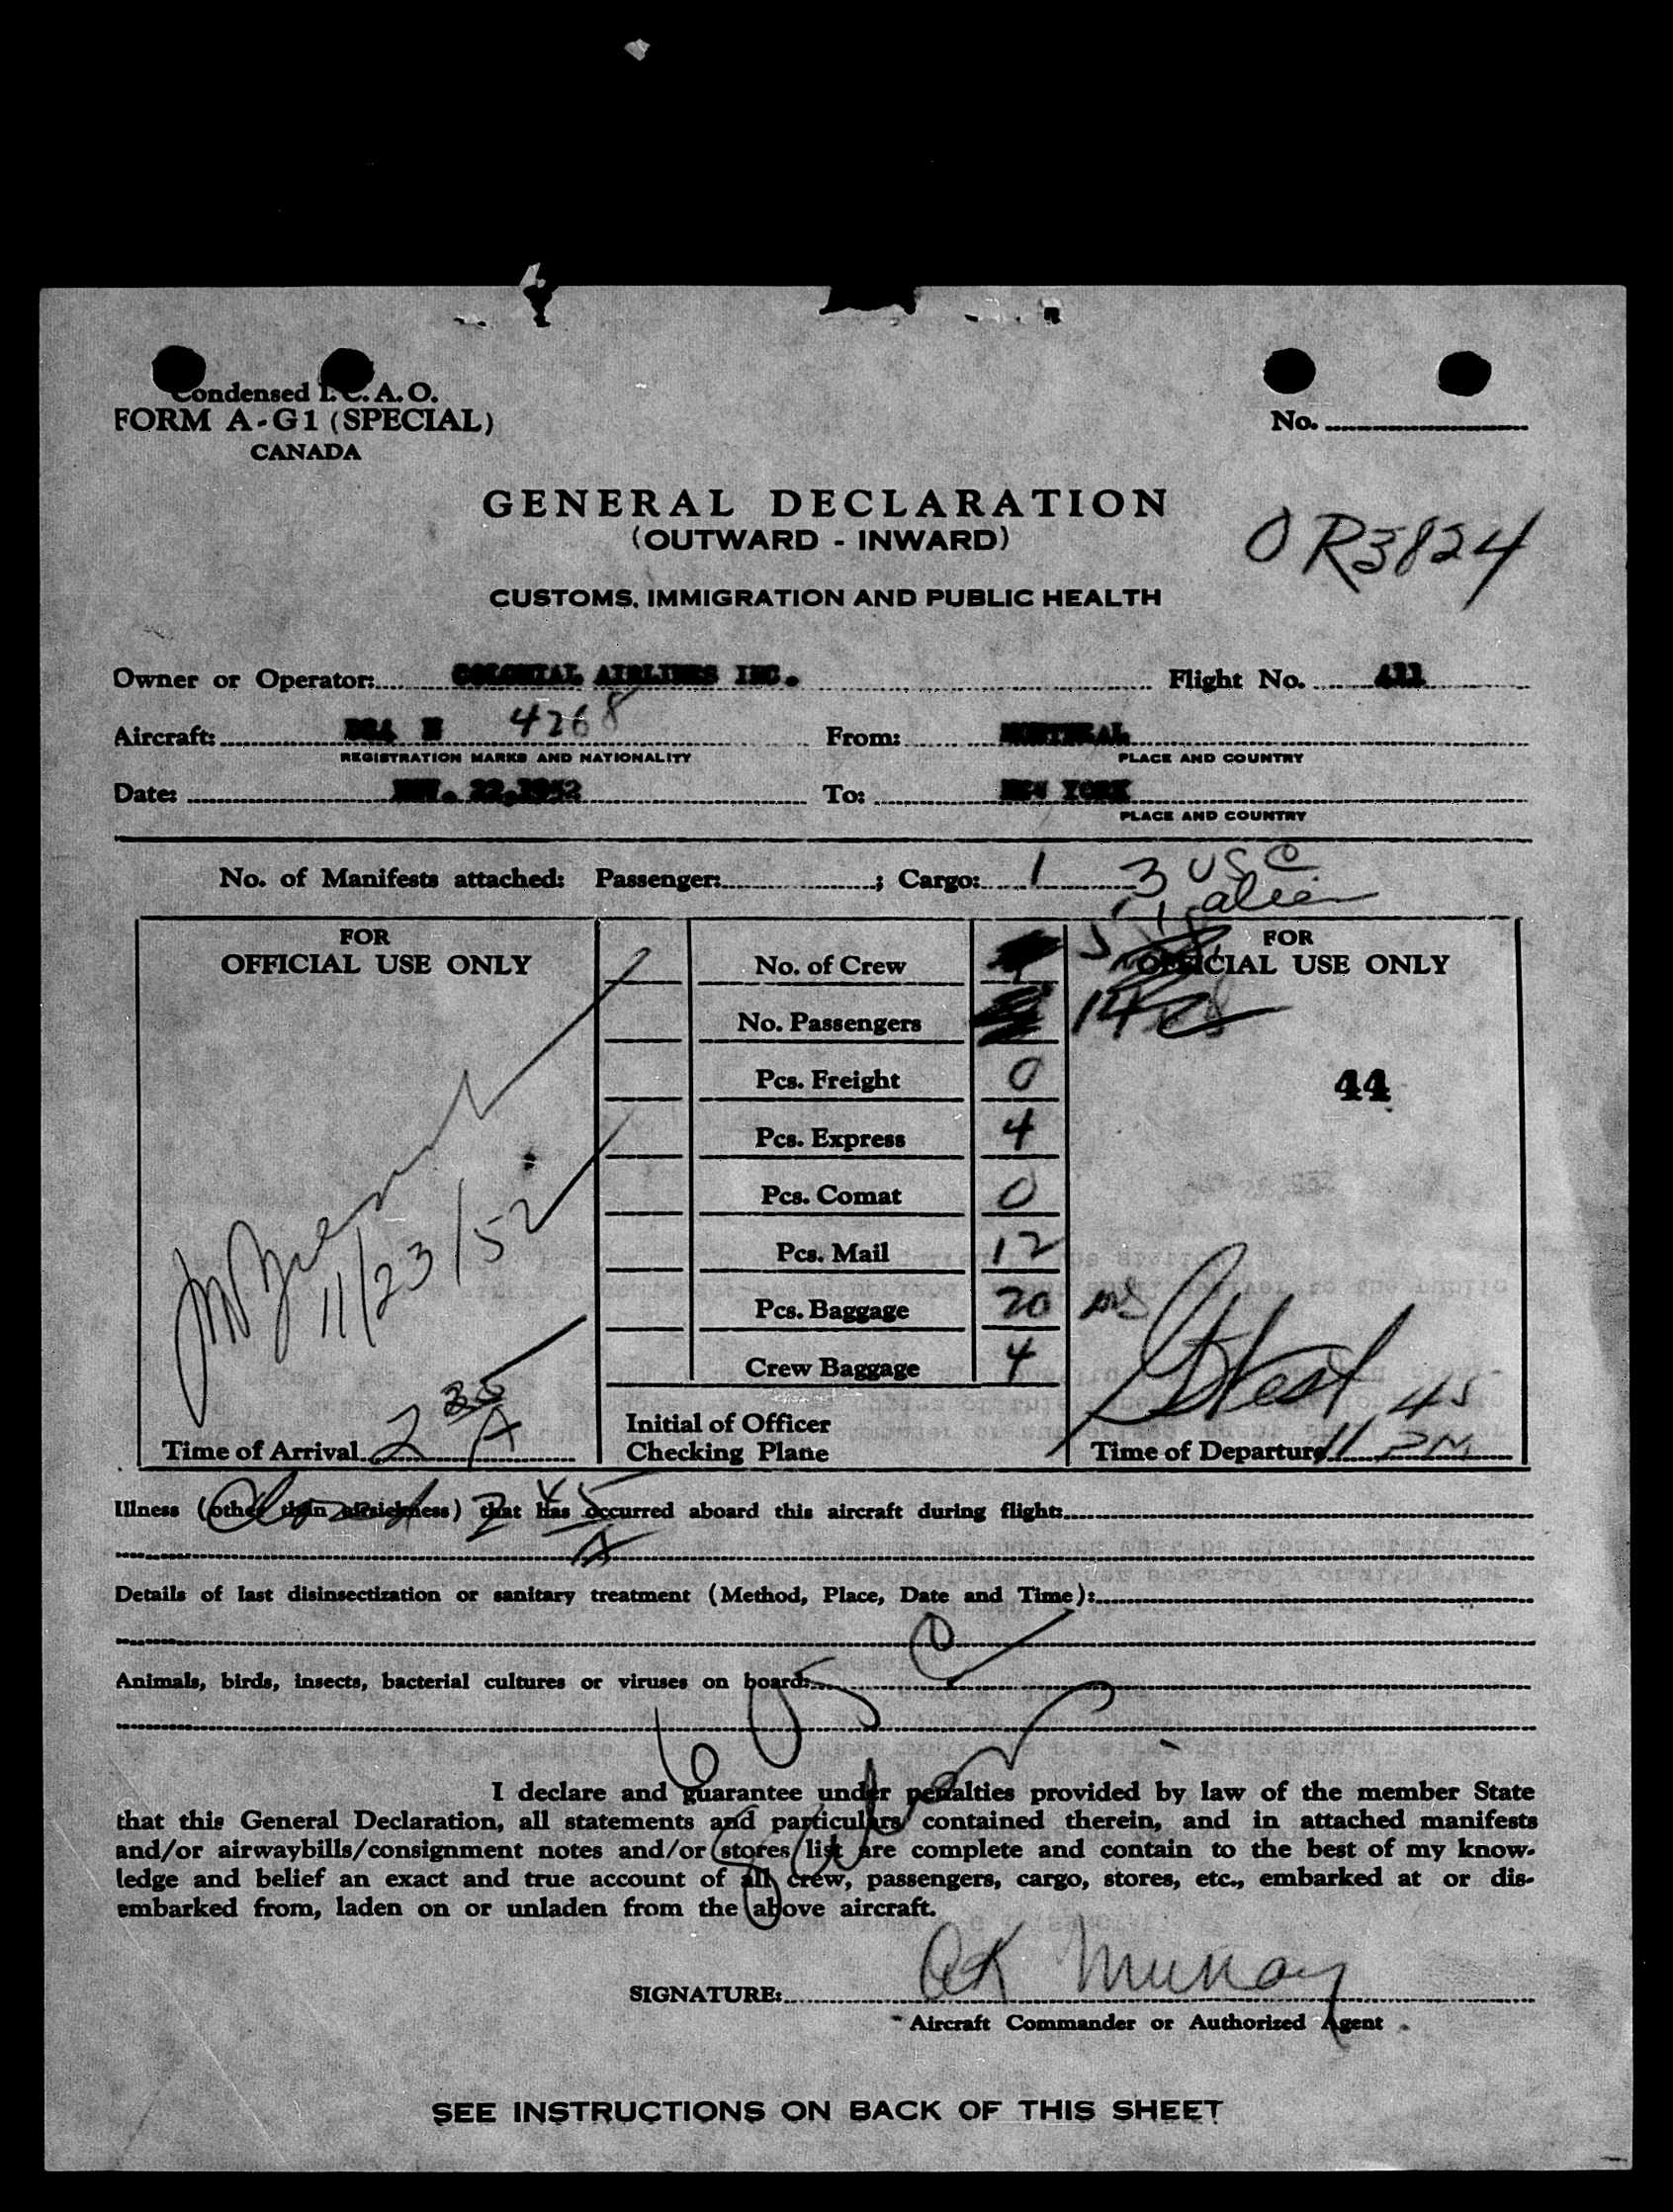 Condensed I.C.A.O.
FORM A-G1 (SPECIAL)
CANADA
No.
GENERAL DECLARATION
(OUTWARD - INWARD)
OR3824
CUSTOMS, IMMIGRATION AND PUBLIC HEALTH
Owner or Operator: COLONIAL AIRLINES INC. Flight No. 411
Aircraft: DC4 N 4268 From: MONTREAL
REGISTRATION MARKS AND NATIONALITY PLACE AND COUNTRY
Date: NOV. 22,1952 To: NEW YORK
PLACE AND COUNTRY
No. of Manifests attached: Passenger: ; Cargo: 1 3 USC
1 alien
FOR
OFFICIAL USE ONLY
No. of Crew
FOR
OFFICIAL USE ONLY
No. Passengers 14
Pcs. Freight 0
44
Pcs. Express 4
Pcs. Comat 0
11/23/52
Pcs. Mail 12
Pcs. Baggage 20
Crew Baggage 4
Time of Arrival 2 35 A
Initial of Officer
Checking Plane
Time of Departure 11 45 PM
Illness (other than airsickness) that has occurred aboard this aircraft during flight:
2 45 A
Details of last disinsectization or sanitary treatment (Method, Place, Date and Time):
Animals, birds, insects, bacterial cultures or viruses on board:
6 USC
I declare and guarantee under penalties provided by law of the member State
that this General Declaration, all statements and particulars contained therein, and in attached manifests
and/or airwaybills/consignment notes and/or stores list are complete and contain to the best of my know-
ledge and belief an exact and true account of all crew, passengers, cargo, stores, etc., embarked at or dis-
embarked from, laden on or unladen from the above aircraft.
SIGNATURE: Murray
Aircraft Commander or Authorized Agent
SEE INSTRUCTIONS ON BACK OF THIS SHEET